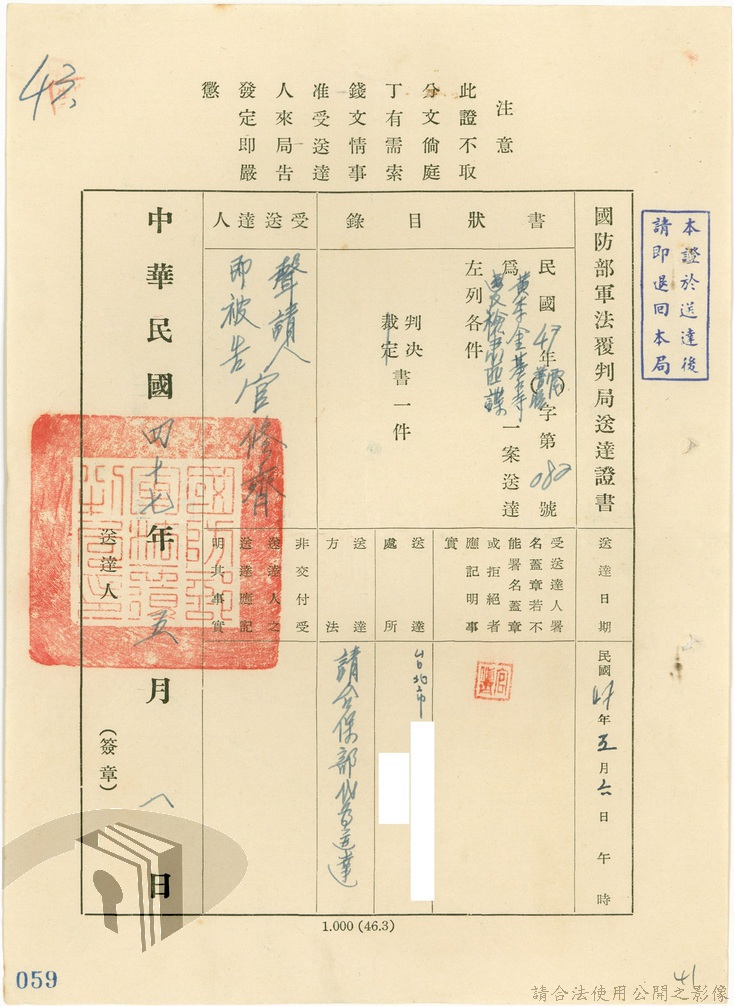 43
注意
此證不取
分文倘庭
丁有需索
錢文情事
准受送達
人來局告
發定即嚴
懲
本證於送達後
請即退回本局
國防部軍法覆判局送達證書
書狀目錄
民國47年(  )字第082號
為黃李金基等
一案送達
左列各件
判決
裁定
書一件
受送達人
聲請人
即被告官修齊
送達日期
民國47年五月六日午時
受送達人署
名蓋章若不
能署名蓋章
或拒絕者
應記明事
實
送達處所
台北市
送達方法
請台保部代為送達
非交付受
送達人之
送達應記
明其事實
中華民國四十七年五月八日
送達人
(簽章)
1.000 (46.3)
059
41
請合法使用公開之影像